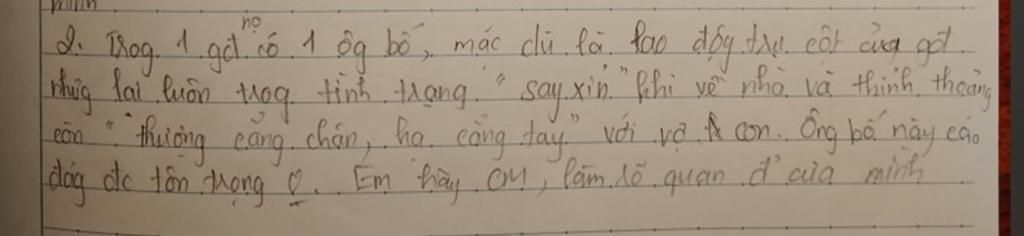 minh
2. Trog 1 gđ nọ có 1 ôg bố, mặc dù là lao độg trụ cột của gđ
nhưg lại luôn trog tình trạng "say xỉn" khi về nhà và thỉnh thoảng
còn "thượng cẳng chân, hạ cẳng tay" với vợ con. Ông bố này có
đág đc tôn trọng ko. Em hãy CM, làm rõ quan đ' của mình